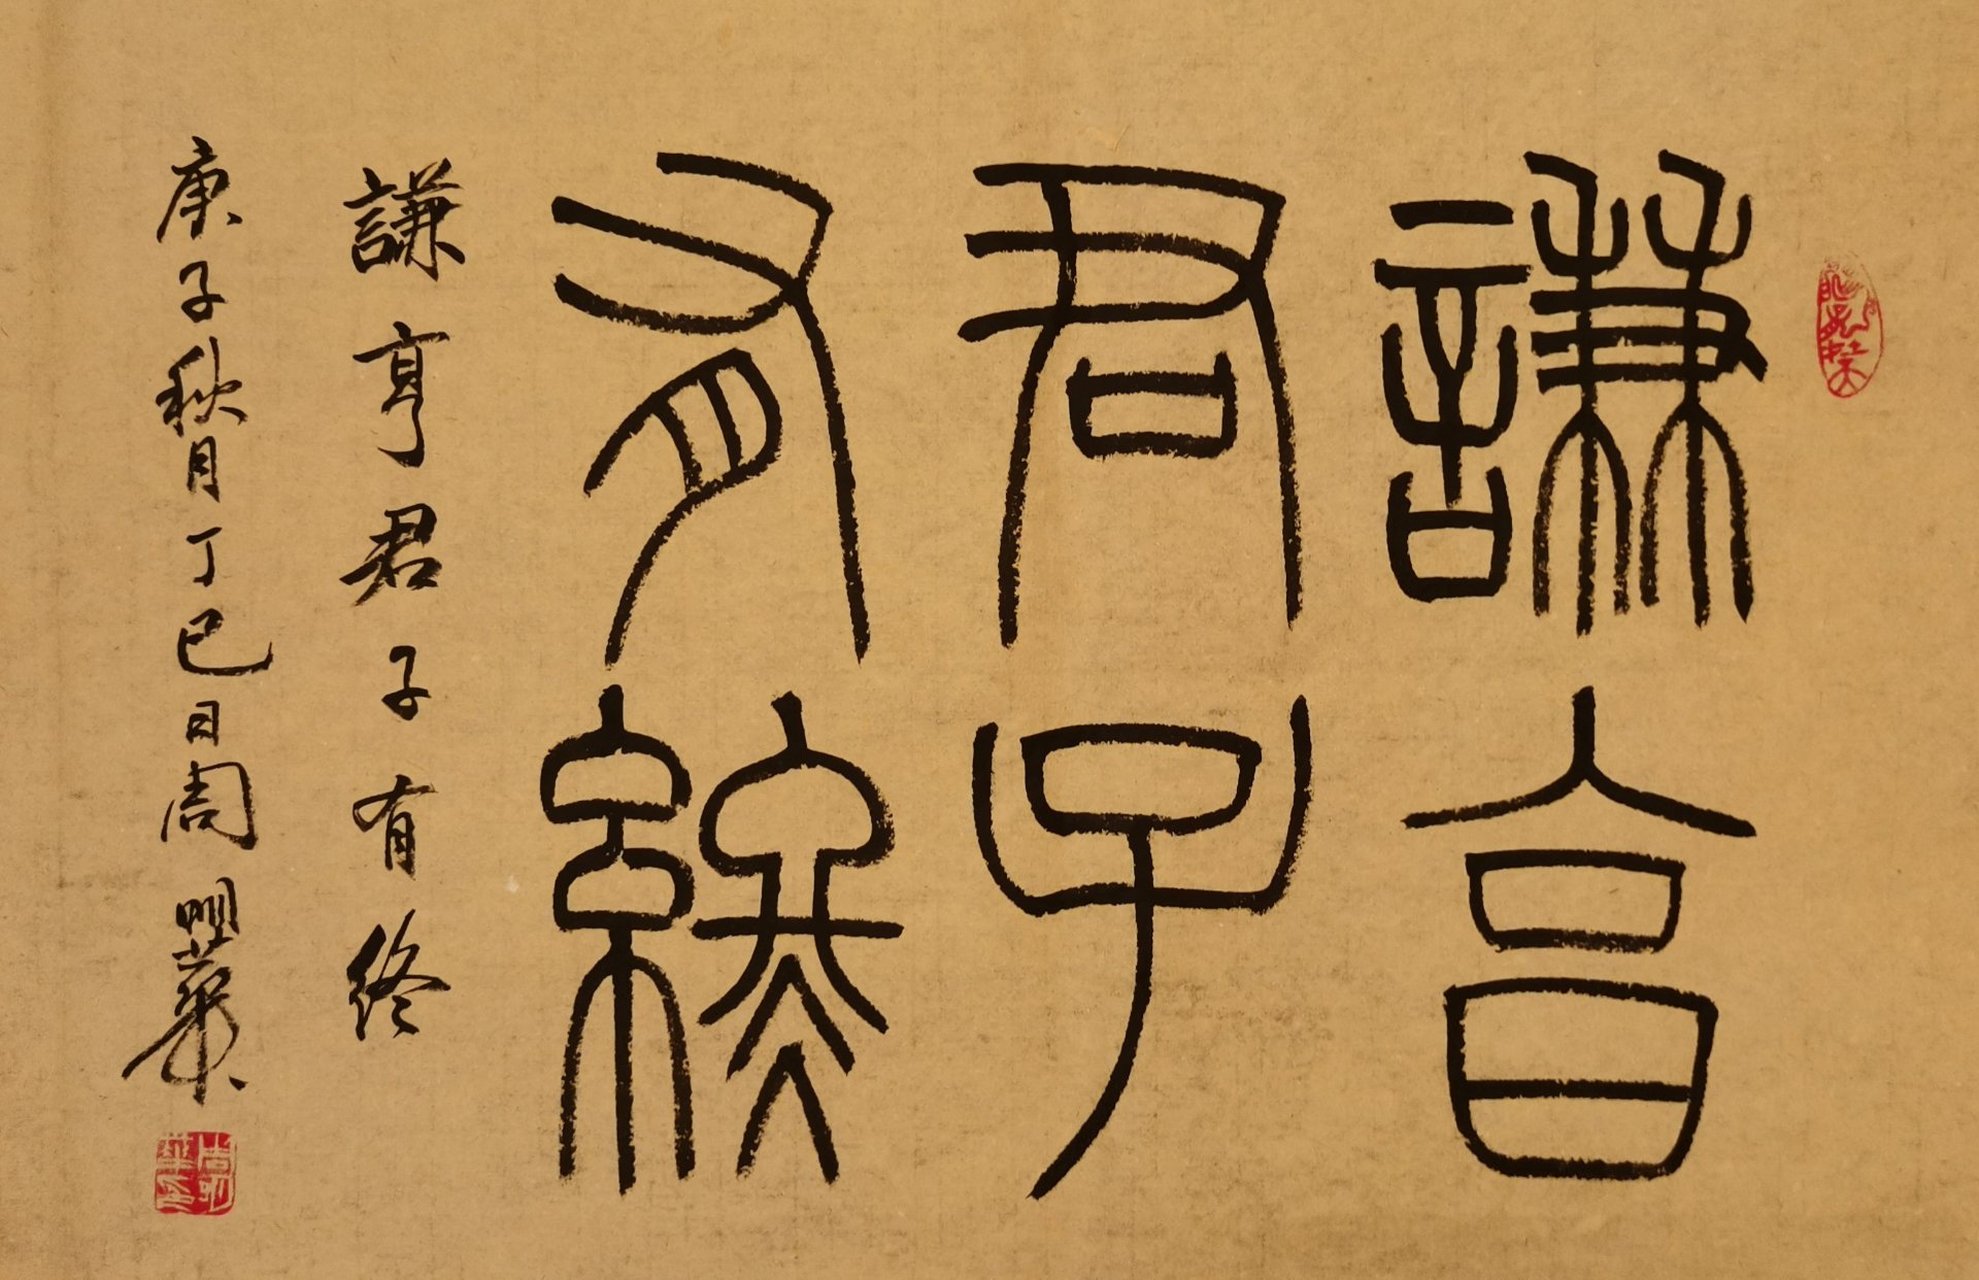 謙亨
君子
有終
謙亨君子有終
庚子秋月丁巳日周明華